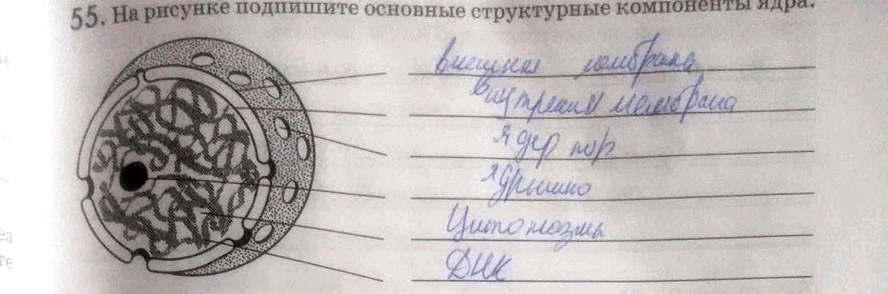 55. На рисунке подпишите основные структурные компоненты ядра.
внешняя мембрана
внутрення мембрана
ядер пор
ядрышко
Цитоплазма
ДНК